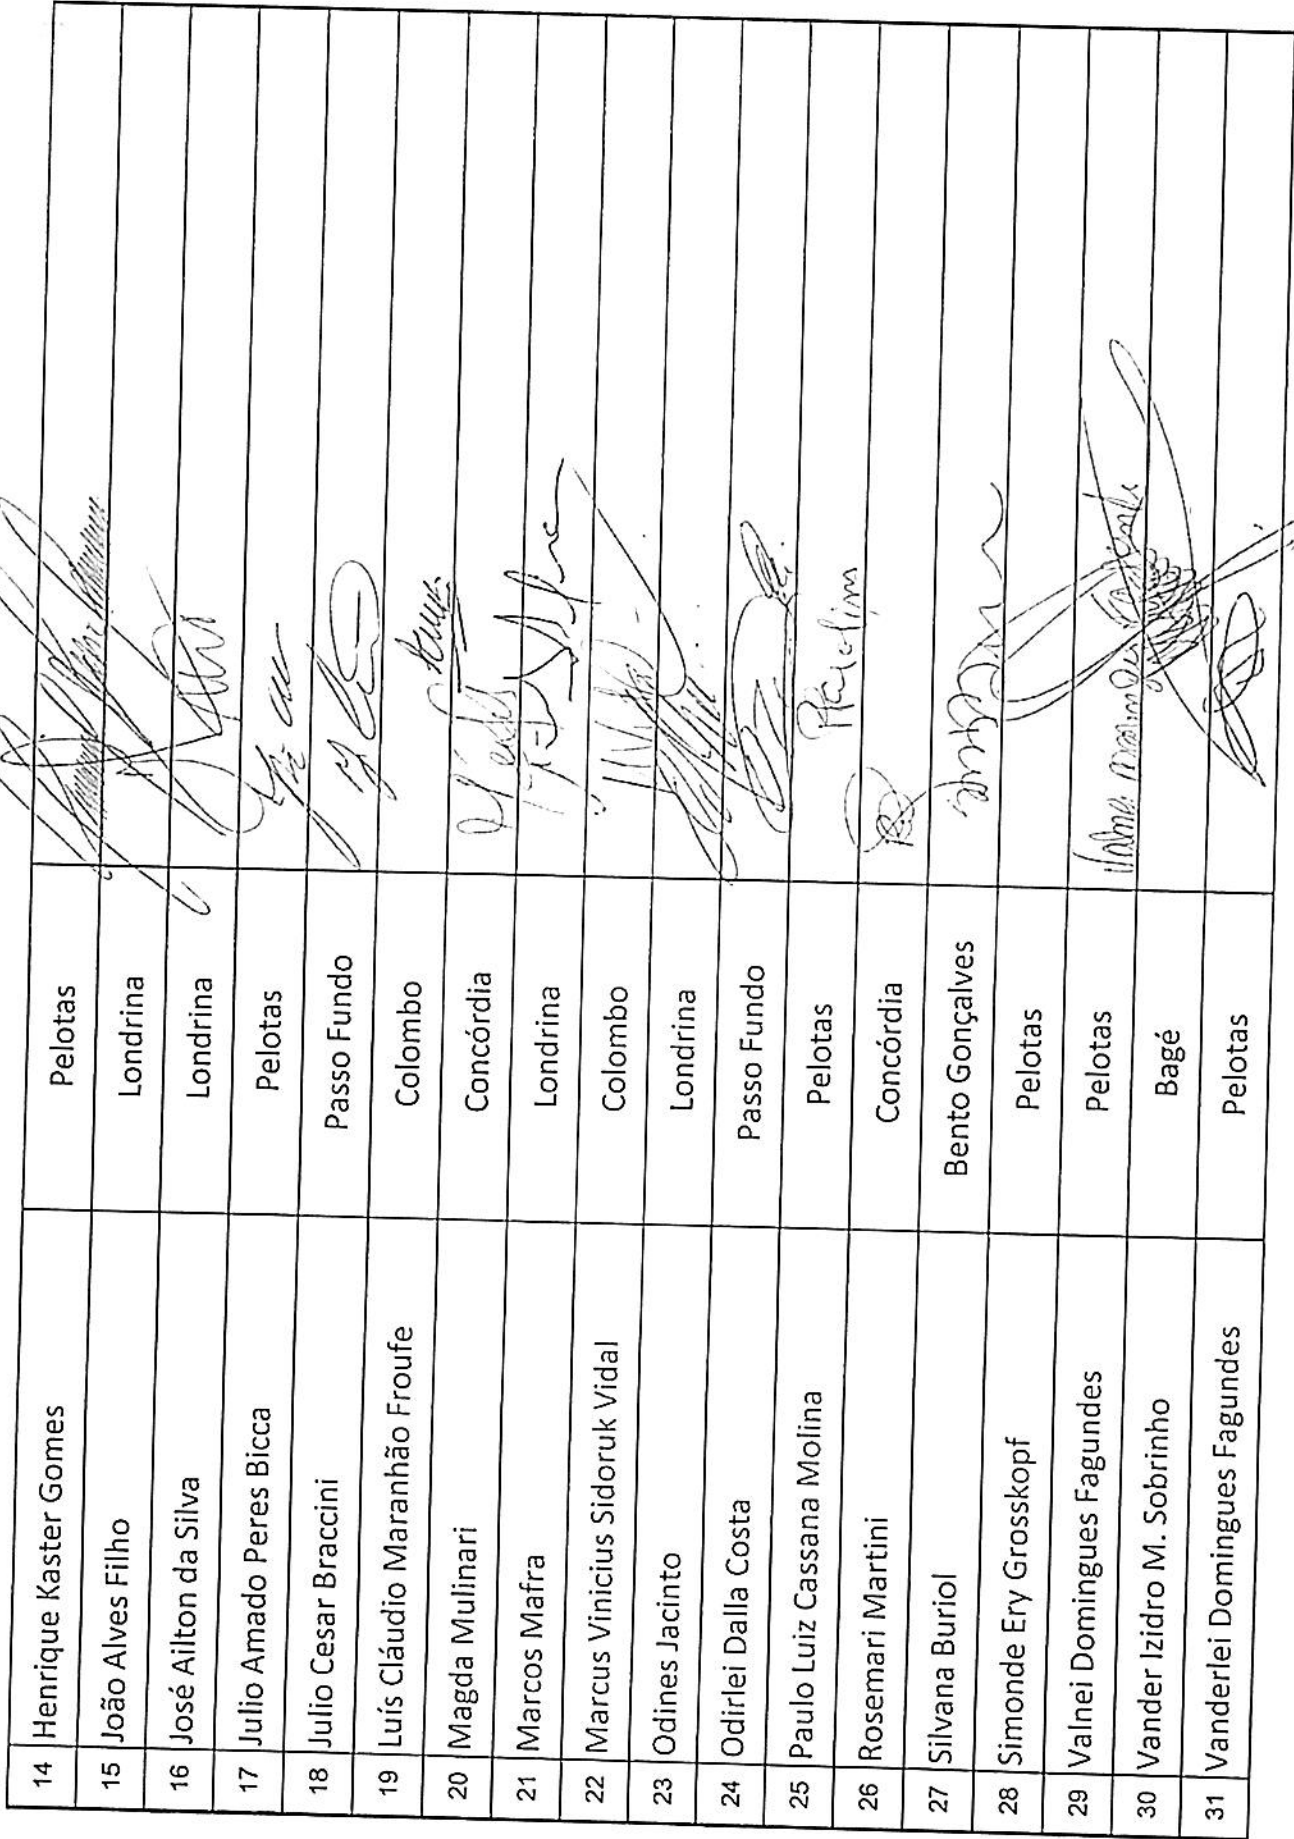 14 Henrique Kaster Gomes Pelotas
15 João Alves Filho Londrina
16 José Ailton da Silva Londrina
17 Julio Amado Peres Bicca Pelotas
18 Julio Cesar Braccini Passo Fundo
19 Luís Cláudio Maranhão Froufe Colombo
20 Magda Mulinari Concórdia
21 Marcos Mafra Londrina
22 Marcus Vinicius Sidoruk Vidal Colombo
23 Odines Jacinto Londrina
24 Odirlei Dalla Costa Passo Fundo
25 Paulo Luiz Cassana Molina Pelotas
26 Rosemari Martini Concórdia
27 Silvana Buriol Bento Gonçalves
28 Simonde Ery Grosskopf Pelotas
29 Valnei Domingues Fagundes Pelotas
30 Vander Izidro M. Sobrinho Bagé
31 Vanderlei Domingues Fagundes Pelotas